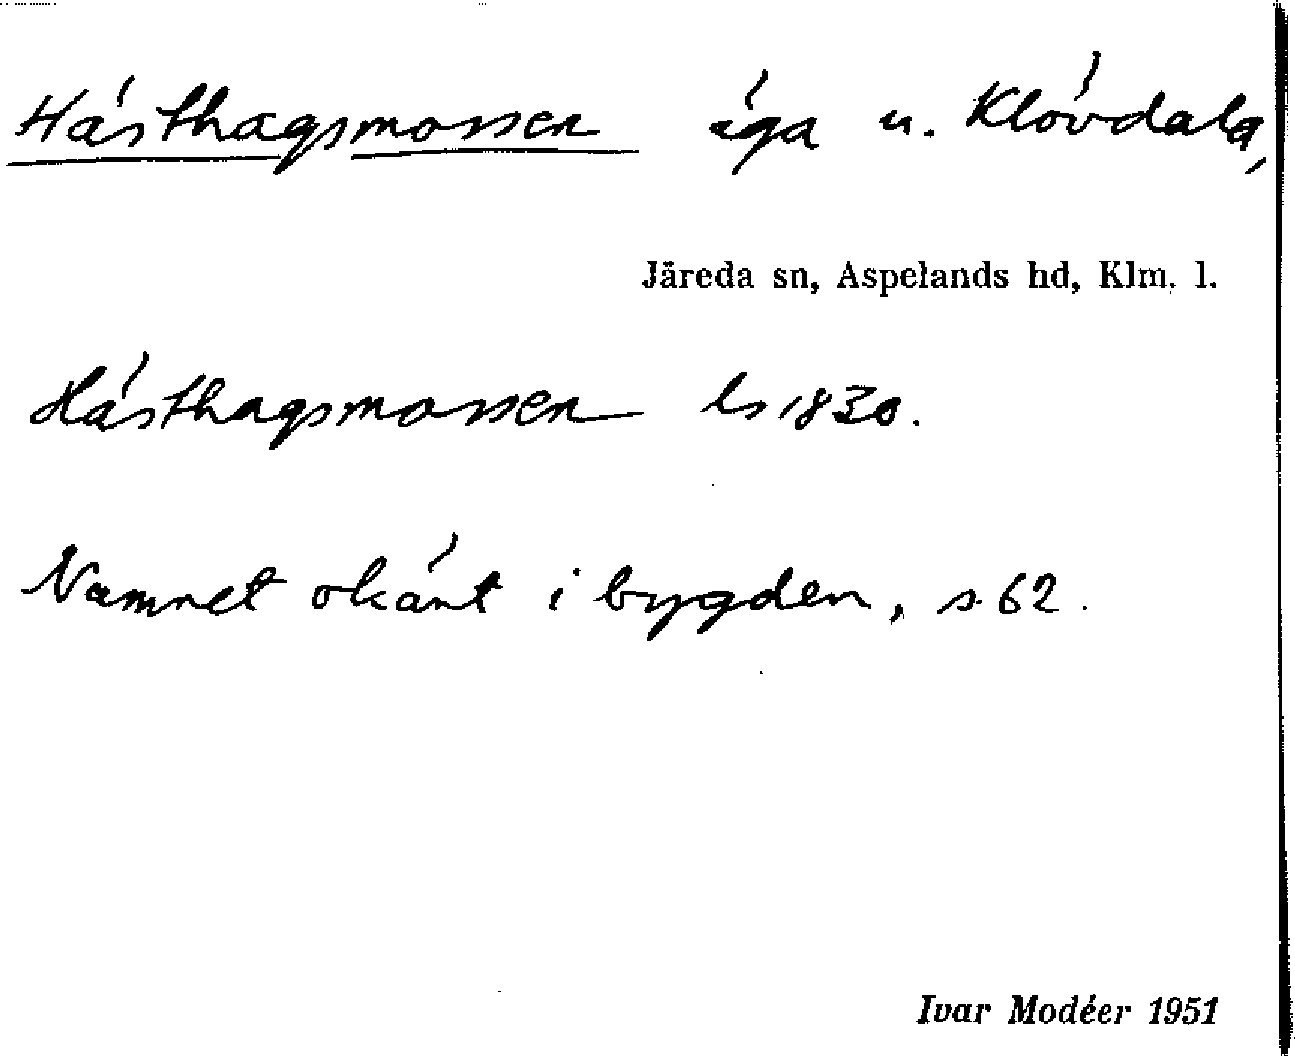 Hästhagsmossen äga u. Klövdala,
Järeda sn, Aspelands hd, Klm. l.
Hästhagsmossen ls 1830.
Namnet okänt i bygden, s 62.
Ivar Modéer 1951